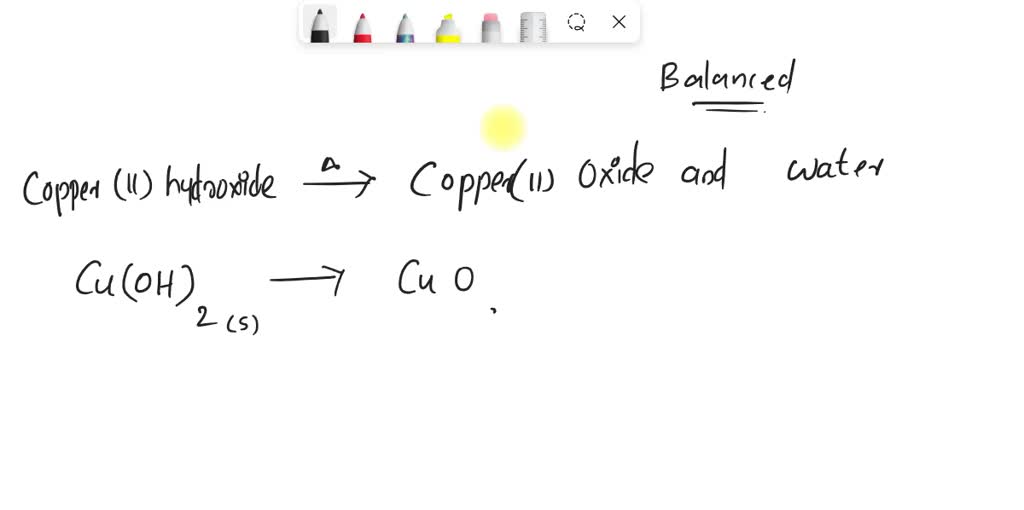 Balanced
Copper (II) hydroxide Δ→ Copper(II) Oxide and water
Cu(OH)2(s) → CuO